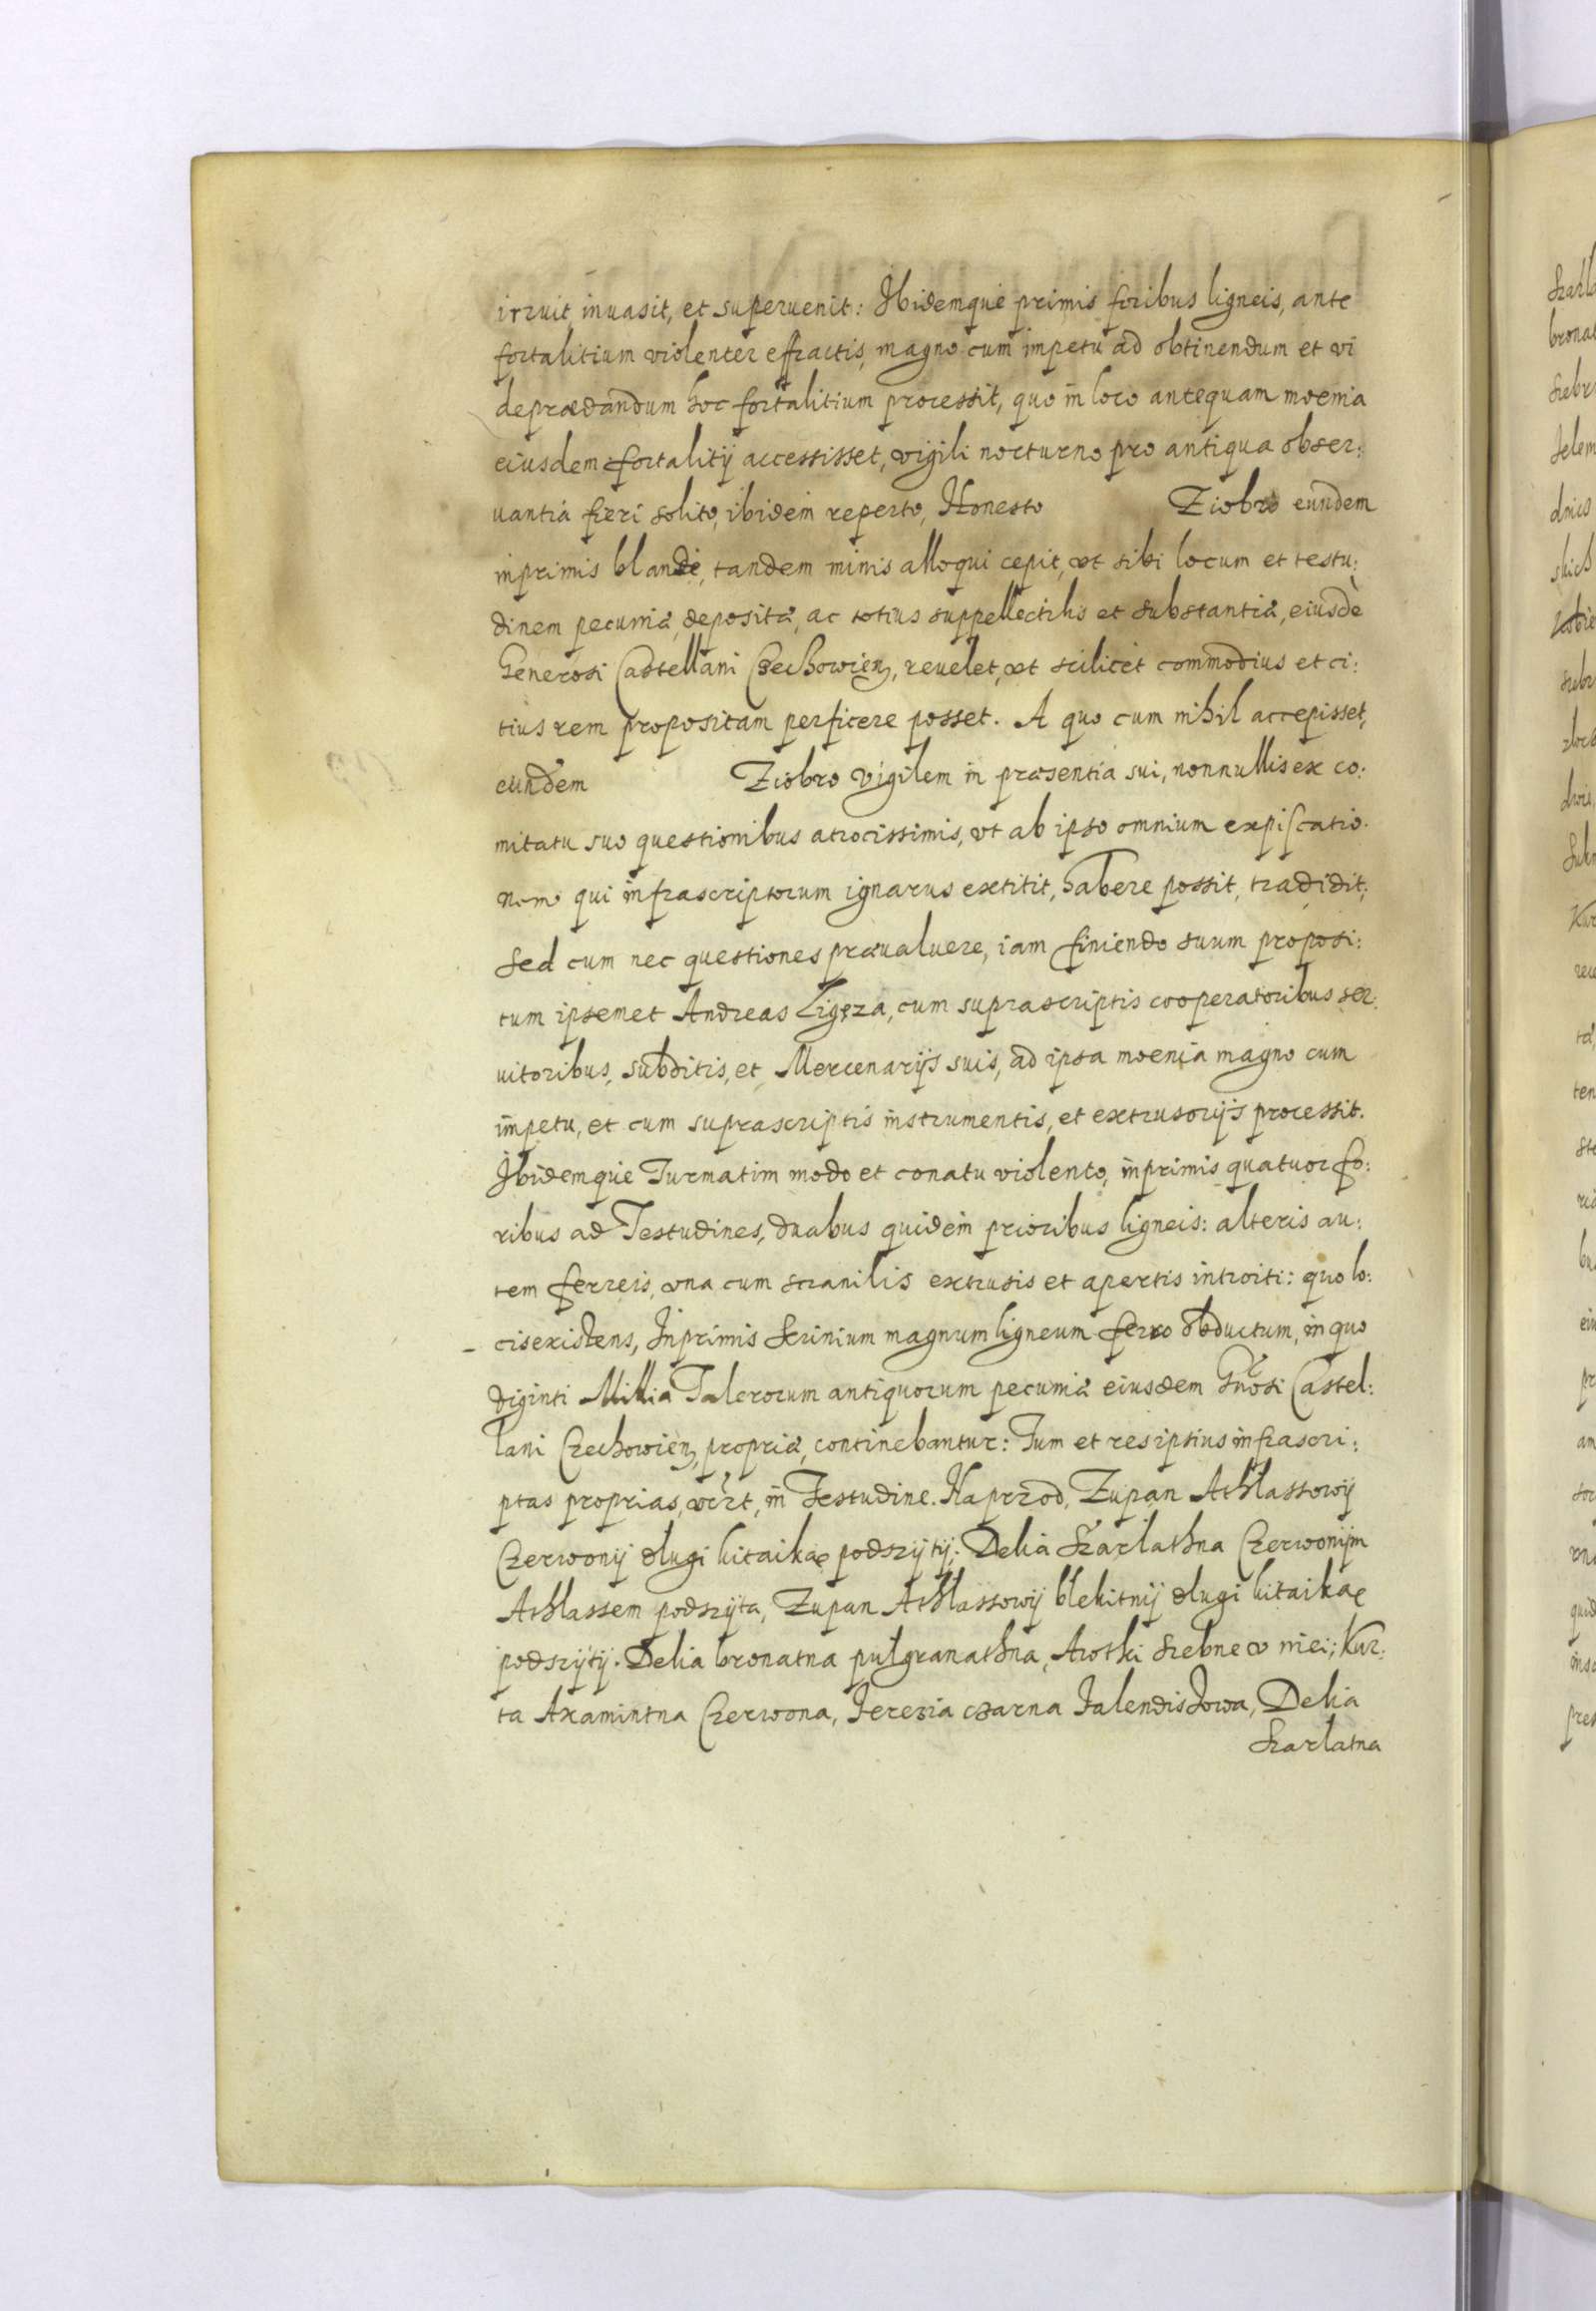 irruit, inuasit, et superuenit: Ibidemque primis foribus ligneis, ante
fortalitium violenter effractis, magno cum impetu ad obtinendum et vi
deprædandum hoc fortalitium processit, quo in loco antequam moenia
eiusdem fortalitij accessisset, vigili nocturno pro antiqua obser:
uantia fieri solito, ibidem reperto, Honesto Ziobro eundem
inprimis blande, tandem minis alloqui cepit, vt sibi locum et testu:
dinem pecuniæ, depositæ, ac totius suppellectilis et substantiæ, eiusdẽ
Generosi Castellani Czechowień, reuelet, vt scilicet commodius et ci:
tius rem propositam perficere posset. A quo cum nihil accepisset,
eundem Ziobro vigilem in præsentia sui, nonnullis ex co:
mitatu suo questionibus atrocissimis, vt ab ipso omnium expiscatio:
nem qui infrascriptorum ignarus extitit, habere possit, tradidit;
Sed cum nec questiones præualuere, iam finiendo suum proposi:
tum ipsemet Andreas Ligęza, cum suprascriptis cooperatoribus ser:
uitoribus, subditis, et Mercenarijs suis, ad ipsa moenia magno cum
impetu, et cum suprascriptis instrumentis, et extrusorijs processit.
Ibidemque Turmatim modo et conatu violento, inprimis quatuor fo:
ribus ad Testudines, duabus quidem prioribus ligneis: alteris au:
tem ferreis, vna cum scanilis extrusis et apertis introiti: quo lo:
cis existens, Inprimis Scrinium magnum ligneum ferro obductum, in quo
viginti Millia Talerorum antiquorum pecuniæ eiusdem Gnosi Castel:
lani Czechowień, propriæ, continebantur: Tum et res ipsius infrascri:
ptas proprias, in Testudine. Naprzod, Zupan Athlassowij
Czerwonij dlugi kitaikąę podszijtij; Delia Szarlathna Czerwonijm
Athlassem podszijta, Zupan Athlassowij blekitnij dlugi kitaikąę
podszijtij. Delia bronatna pulgranathna, Arothi srebne v niei; Kur:
ta Axamintna Czerwona, Ierezia czarna Falendisowa, Delia
Szarlatna